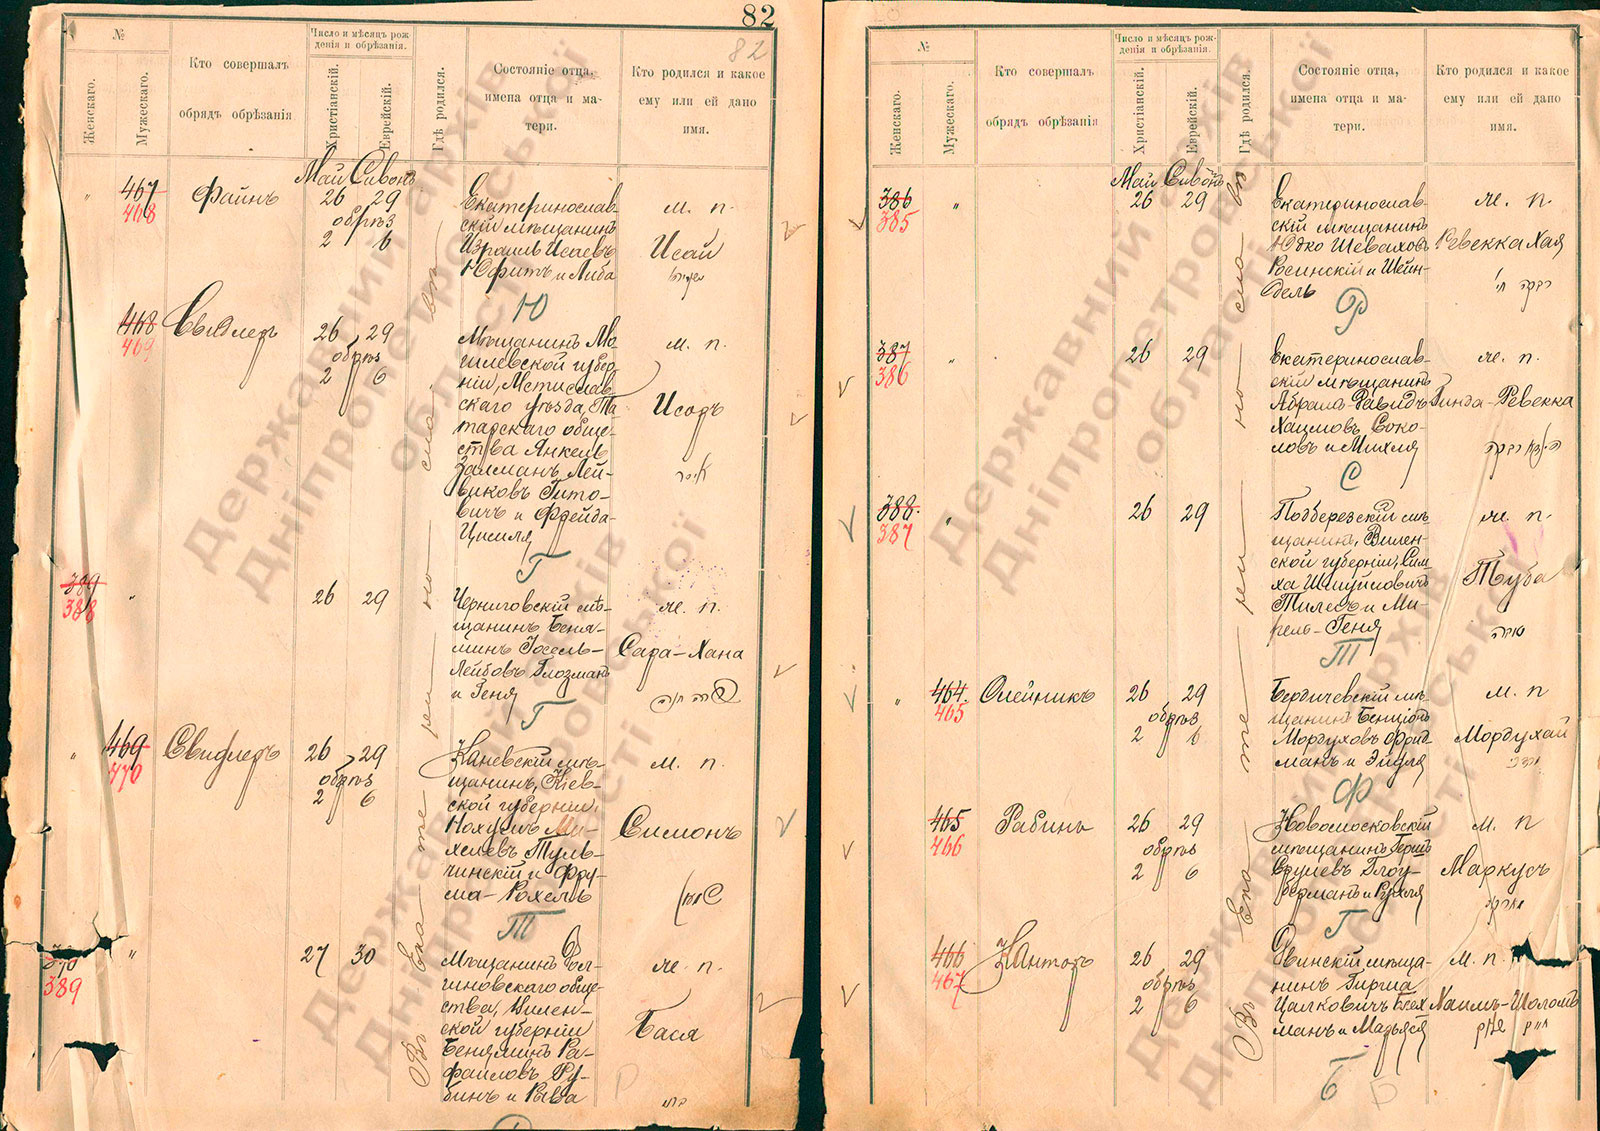 82
82
№
Женскаго.
Мужескаго.
Кто совершалъ
обрядъ обрѣзанія
Число и мѣсяцъ рож-
денія и обрѣзанія.
Христіанскій.
Еврейскій.
Гдѣ родился.
Состояніе отца,
имена отца и ма-
тери.
Кто родился и какое
ему или ей дано
имя.
Май Сивонъ
467
468
Файнъ
26 29
обрѣз
2 6
Екатеринослав-
скій мѣщанинъ
Израиль Исаевъ
Юфитъ и Либа
м. п.
Исай
Ю
468
469
26 29
обрѣз
2 6
Мѣщанинъ Мо-
гилевской губер-
ніи, Мстислав-
скаго уѣзда, Та-
тарскаго обще-
ства Янкель
Залманъ Лей-
виковъ Гито-
вичъ и Фрейда-
Цисиля
м. п.
Исоръ
Г
389
388
26 29
Черниговскій мѣ-
щанинъ Беня-
минъ Іосель-
Лейбовъ Глозманъ
и Геня
же. п.
Сара-Хана
שרה חנה
Г
469
470
26 29
обрѣз
2 6
Каневскій мѣ-
щанинъ, Кіев-
ской губерніи
Нохумъ Ми-
хелевъ Туль-
чинскій и Фру-
ма-Рохель
м. п.
Симонъ
Т
370
389
27 30
Мѣщанинъ Дол-
гиновскаго обще-
ства, Вилен-
ской губерніи
Беняминъ Ра-
фаиловъ Ру-
бинъ и Рыва
же. п.
Бася
Р
Въ Екатеринославѣ
№
Женскаго.
Мужескаго.
Кто совершалъ
обрядъ обрѣзанія
Число и мѣсяцъ рож-
денія и обрѣзанія.
Христіанскій.
Еврейскій.
Гдѣ родился.
Состояніе отца,
имена отца и ма-
тери.
Кто родился и какое
ему или ей дано
имя.
Май Сивонъ
386
385
26 29
Екатеринослав-
скій мѣщанинъ
Юдко Шеваховъ
Росинскій и Шейн-
дель
же. п.
Ревекка Хая
רבקה חי'
Р
387
386
26 29
Екатеринослав-
скій мѣщанинъ
Абрамъ-Давидъ
Хаимовъ Соко-
ловъ и Михля
же. п.
Гинда-Ревекка
С
388
387
26 29
Подберезскій мѣ-
щанинъ, Вилен-
ской губерніи, Сим-
ха Шмуйловичъ
Тилесъ и Ми-
рель-Геня
же. п.
Туба
Т
464
465
Олейникъ
26 29
обрѣз
2 6
Бердичевскій мѣ-
щанинъ Бенціонъ
Мордуховъ Фрид-
манъ и Эйдля
м. п
Мордухай
Ф
465
466
Рабинъ
26 29
обрѣз
2 6
Новомосковскій
мѣщанинъ Гершъ
Сруловъ Глоу-
берманъ и Рухля
м. п
Маркусъ
Г
466
467
Канторъ
26 29
обрѣз
2 6
Двинскій мѣща-
нинъ Гирша
Цалковичъ Блех
манъ и Мадьяся
м. п.
Хаимъ-Шоломъ
Б Б
Въ Екатеринославѣ
Державний архів
Дніпропетровської
області